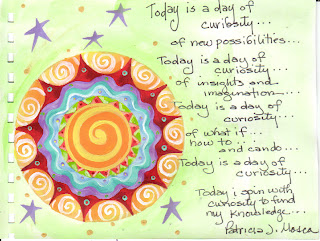 Today is a day of
curiosity...
of new possibilities...
Today is a day of
curiosity...
of insights and
imagination...
Today is a day of
curiosity...
of what if...
how to...
and cando...
Today is a day of
curiosity...
Today i spin with
curiosity to find
my knowledge...
Patricia J. Mosca